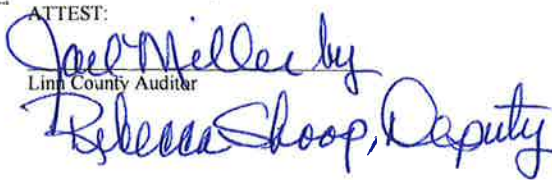 ATTEST:
Joel Miller by
Linn County Auditor
Rebecca Shoop, Deputy